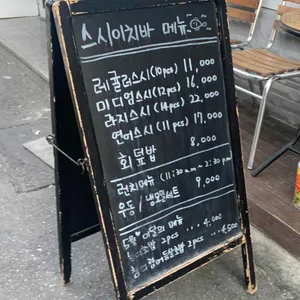 스시이치바 메뉴
레귤러스시(10pcs) 11,000
미디엄스시(12pcs) 16,000
라지스시(14pcs) 22,000
연어스시(11pcs) 17,000
회덮밥 8,000
런치메뉴 (11:30 a.m ~ 2:30 p.m)
우동/냉모밀세트 9,000
5월♥이달의 메뉴
초밥 2pcs ... 4,000
초밥 2pcs ... 4,500